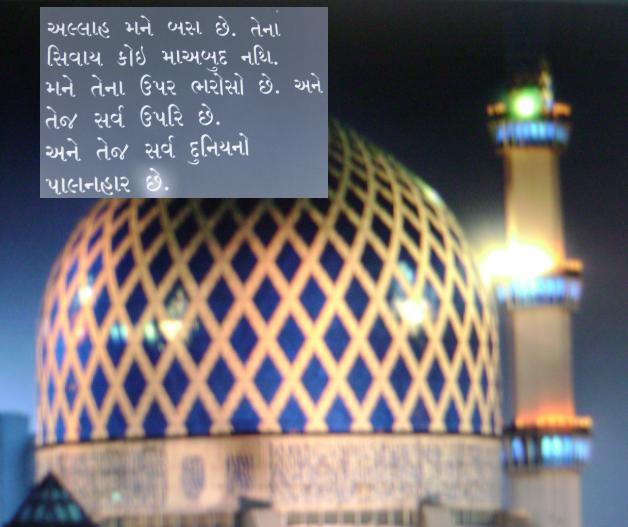 અલ્લાહ મને બસ છે. તેનાં
સિવાય કોઇ માઅબુદ નથિ.
મને તેના ઉપર ભરોસો છે. અને
તેજ સર્વ ઉપરિ છે.
અને તેજ સર્વ દુનિયનો
પાલનહાર છે.